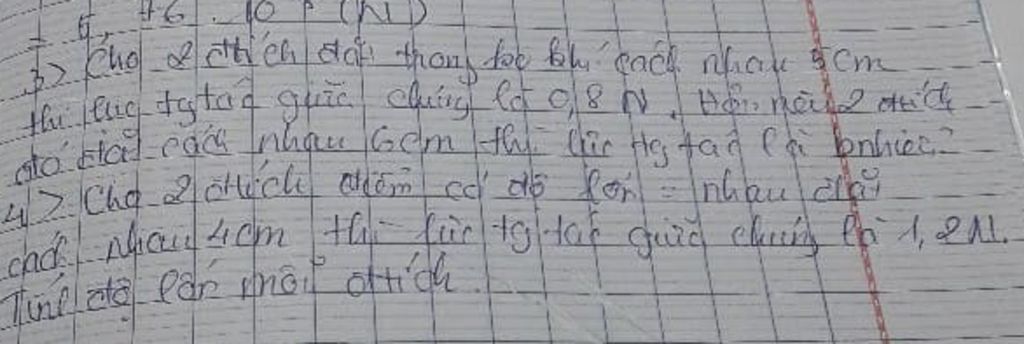 3) Cho 2 đtích đặt trong kk cách nhau 3cm
thì lực tg tác giữa chúng là 0,8 N. Hỏi nếu 2 đtích
đó đặt cách nhau 6cm thì lực tg tác là bnhiêu?
4) Cho 2 đtích điểm có độ lớn = nhau đặt
cách nhau 4cm thì lực tg tác giữa chúng là 1,2N.
Tính độ lớn mỗi đtích